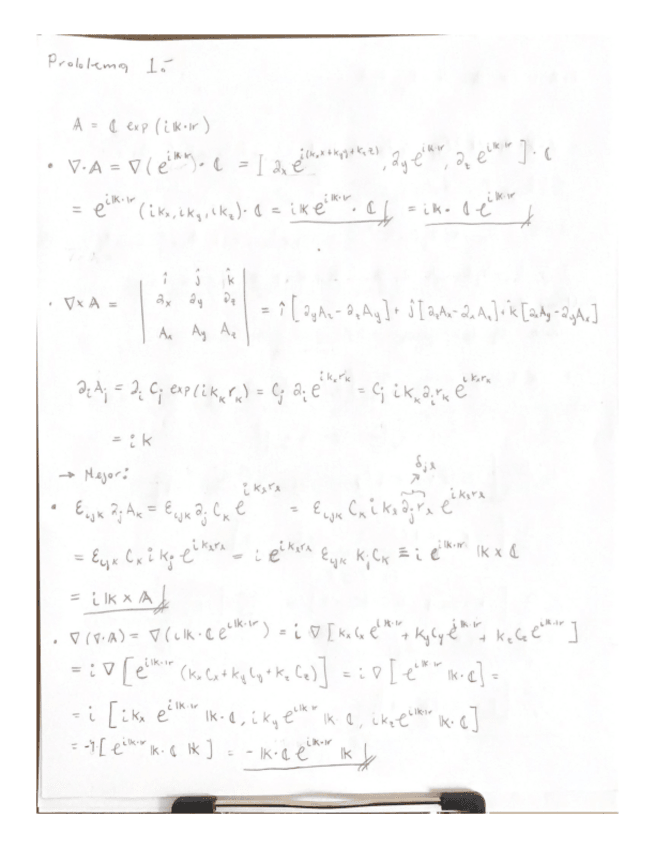 Problema 1.-
𝔸 = ℂ exp(i𝕜·𝕣)
• ∇·𝔸 = ∇(e^{i𝕜·𝕣})·ℂ = [∂x e^{i(kxx+kyy+kzz)}, ∂y e^{i𝕜·𝕣}, ∂z e^{i𝕜·𝕣}]·ℂ
= e^{i𝕜·𝕣}(ikx, iky, ikz)·ℂ = i𝕜e^{i𝕜·𝕣}·ℂ = i𝕜·ℂe^{i𝕜·𝕣}
î ĵ k̂
• ∇×𝔸 = | ∂x ∂y ∂z | = î[∂yAz-∂zAy]+ĵ[∂zAx-∂xAz]+k̂[∂xAy-∂yAx]
Ax Ay Az
∂iAj = ∂i Cj exp(ikκrκ) = Cj ∂i e^{ikκrκ} = Cj ikκ∂irκ e^{ikκrκ}
= ik
→ Mejor: δjℓ
• εijk ∂jAk = εijk ∂j Ck e^{ikℓrℓ} = εijk Ck i kℓ ∂jrℓ e^{ikℓrℓ}
= εijk Ck i kj e^{ikℓrℓ} = i e^{ikℓrℓ} εijk kj Ck ≡ i e^{i𝕜·𝕣} 𝕜×ℂ
= i𝕜×𝔸
• ∇(∇·𝔸) = ∇(i𝕜·ℂe^{i𝕜·𝕣}) = i∇[kxCxe^{i𝕜·𝕣} + kyCye^{i𝕜·𝕣} + kzCze^{i𝕜·𝕣}]
= i∇[e^{i𝕜·𝕣}(kxCx+kyCy+kzCz)] = i∇[e^{i𝕜·𝕣} 𝕜·ℂ] =
= i[ikx e^{i𝕜·𝕣} 𝕜·ℂ, iky e^{i𝕜·𝕣} 𝕜·ℂ, ikz e^{i𝕜·𝕣} 𝕜·ℂ]
= -1[e^{i𝕜·𝕣} 𝕜·ℂ 𝕜] = -𝕜·ℂ e^{i𝕜·𝕣} 𝕜